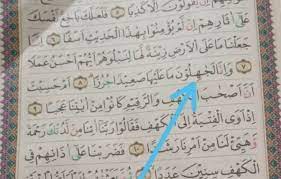 إِن يَقُولُونَ إِلَّا كَذِبًا ٥ فَلَعَلَّكَ بَٰخِعٌ نَّفْسَكَ
عَلَىٰٓ ءَاثَٰرِهِمْ إِن لَّمْ يُؤْمِنُوا۟ بِهَٰذَا ٱلْحَدِيثِ أَسَفًا ٦ إِنَّا
جَعَلْنَا مَا عَلَى ٱلْأَرْضِ زِينَةً لَّهَا لِنَبْلُوَهُمْ أَيُّهُمْ أَحْسَنُ عَمَلًا
٧ وَإِنَّا لَجَٰهِلُونَ مَا عَلَيْهَا صَعِيدًا جُرُزًا ٨ أَمْ حَسِبْتَ
أَنَّ أَصْحَٰبَ ٱلْكَهْفِ وَٱلرَّقِيمِ كَانُوا۟ مِنْ ءَايَٰتِنَا عَجَبًا ٩
إِذْ أَوَى ٱلْفِتْيَةُ إِلَى ٱلْكَهْفِ فَقَالُوا۟ رَبَّنَآ ءَاتِنَا مِن لَّدُنكَ رَحْمَةً
وَهَيِّئْ لَنَا مِنْ أَمْرِنَا رَشَدًا ١٠ فَضَرَبْنَا عَلَىٰٓ ءَاذَانِهِمْ فِى
ٱلْكَهْفِ سِنِينَ عَدَدًا